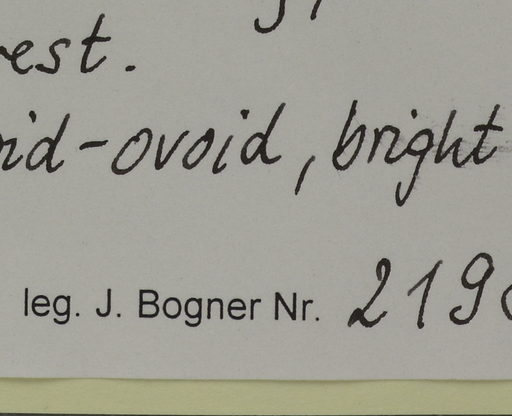 est.
id-ovoid, bright
leg. J. Bogner Nr. 219